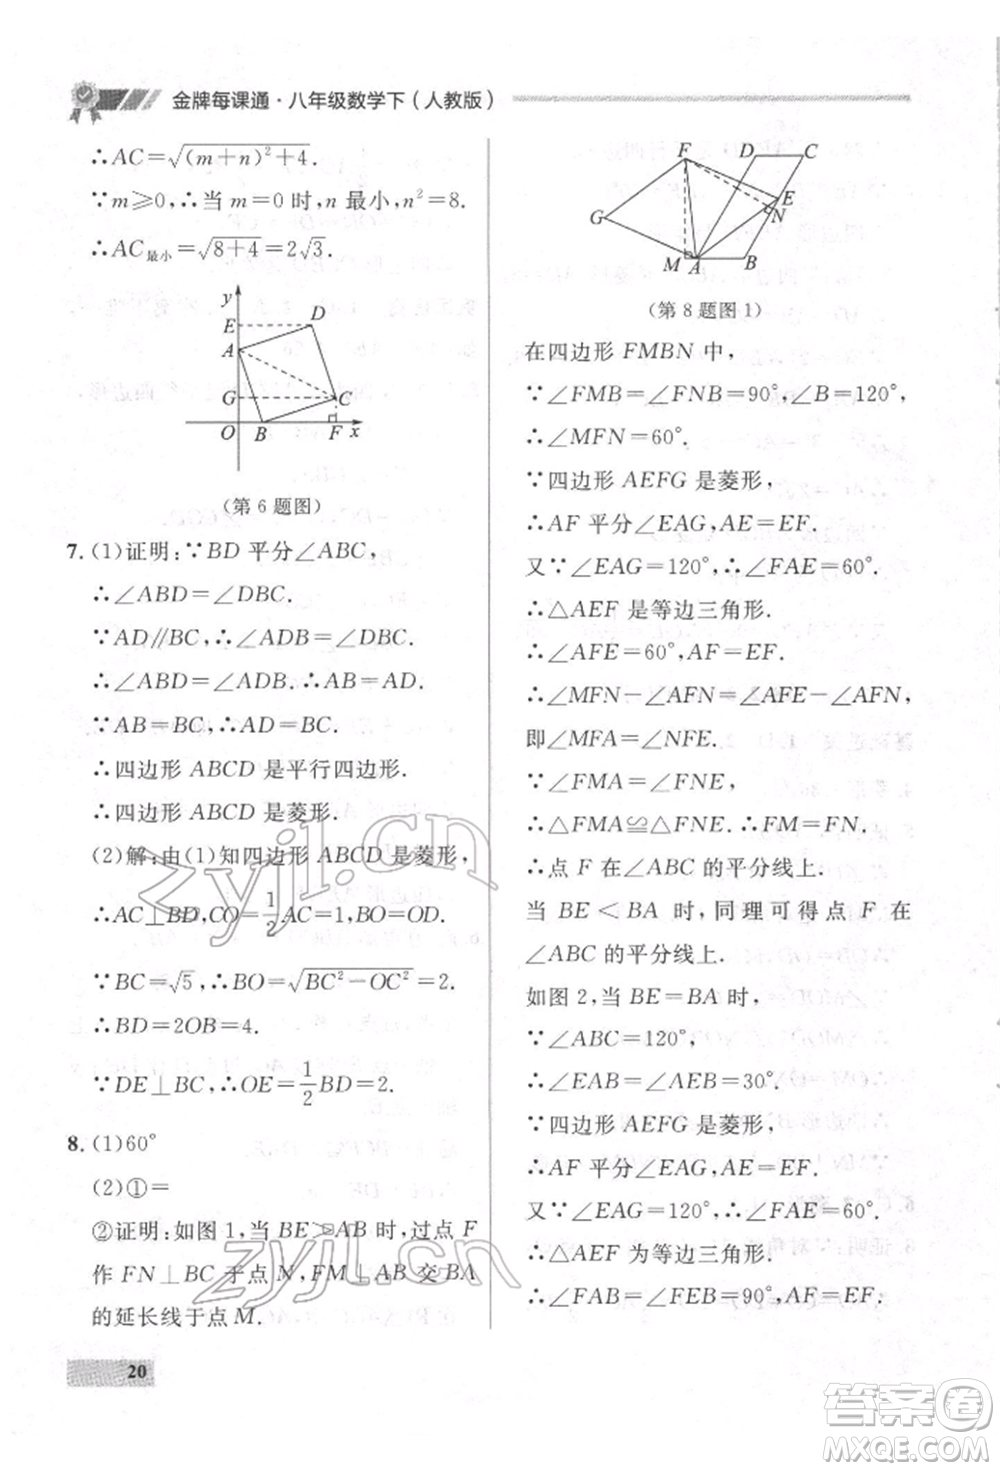 金牌每课通·八年级数学下（人教版）
∴AC=√(m+n)²+4.
∵m⩾0,∴当 m=0 时,n 最小,n²=8.
∴AC最小=√8+4=2√3.
y
E
D
A
G
C
O
B
F
x
(第 6 题图)
7. (1)证明:∵BD 平分∠ABC,
∴∠ABD=∠DBC.
∵AD∥BC,∴∠ADB=∠DBC.
∴∠ABD=∠ADB.∴AB=AD.
∵AB=BC,∴AD=BC.
∴四边形 ABCD 是平行四边形.
∴四边形 ABCD 是菱形.
(2)解:由(1)知四边形 ABCD 是菱形,
∴AC⊥BD,CO=1/2 AC=1,BO=OD.
∵BC=√5,∴BO=√BC²-OC²=2.
∴BD=2OB=4.
∵DE⊥BC,∴OE=1/2 BD=2.
8. (1)60°
(2)①=
②证明:如图 1,当 BE>AB 时,过点 F
作 FN⊥BC 于点 N,FM⊥AB 交 BA
的延长线于点 M.
20
F
D
C
E
N
G
M
A
B
(第 8 题图 1)
在四边形 FMBN 中,
∵∠FMB=∠FNB=90°,∠B=120°,
∴∠MFN=60°.
∵四边形 AEFG 是菱形,
∴AF 平分∠EAG,AE=EF.
又∵∠EAG=120°,∴∠FAE=60°.
∴△AEF 是等边三角形.
∴∠AFE=60°,AF=EF.
∴∠MFN-∠AFN=∠AFE-∠AFN,
即∠MFA=∠NFE.
∵∠FMA=∠FNE,
∴△FMA≌△FNE.∴FM=FN.
∴点 F 在∠ABC 的平分线上.
当 BE<BA 时,同理可得点 F 在
∠ABC 的平分线上.
如图 2,当 BE=BA 时,
∵∠ABC=120°,
∴∠EAB=∠AEB=30°.
∵四边形 AEFG 是菱形,
∴AF 平分∠EAG,AE=EF.
又∵∠EAG=120°,∴∠FAE=60°.
∴△AEF 为等边三角形.
∴∠FAB=∠FEB=90°,AF=EF.
zyjl.cn
zyjl.cn
答案圈
MXQE.COM